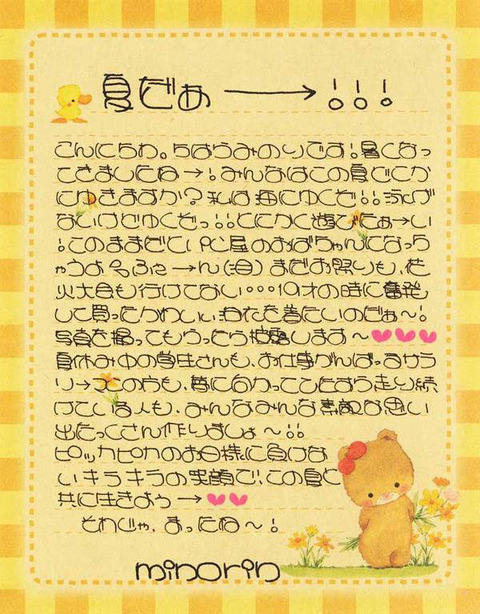 夏だぁ→!!!
こんにちわ。ちはらみのりです!暑くなっ
てきましたね→!みんなはこの夏どこか
にゆきますか?私は海にゆくぞ!!泳げ
ないけどゆくぞっ!!とにかく遊びたぁ→い
!このままだとPC屋のおばちゃんになっち
ゃうよぉふえ→ん(泣)まだお祭りも、花
火大会も行けてない…19才の時に奮発
して買ったかわいい を着たいのだぁ〜!
写真を撮ってもらったら披露します〜♥♥♥
夏休み中の学生さんも、お仕事がんばるサラ
リ→マンの方も、夢に向かってひたすら走り続
けている人も、みんなみんな素敵な思い
出たっくさん作りましょ〜!!
ピッカピカのお日様に負けな
いキラキラの笑顔で、この夏と
共に生きよう→♥♥
それじゃ、まったね〜!
minorin